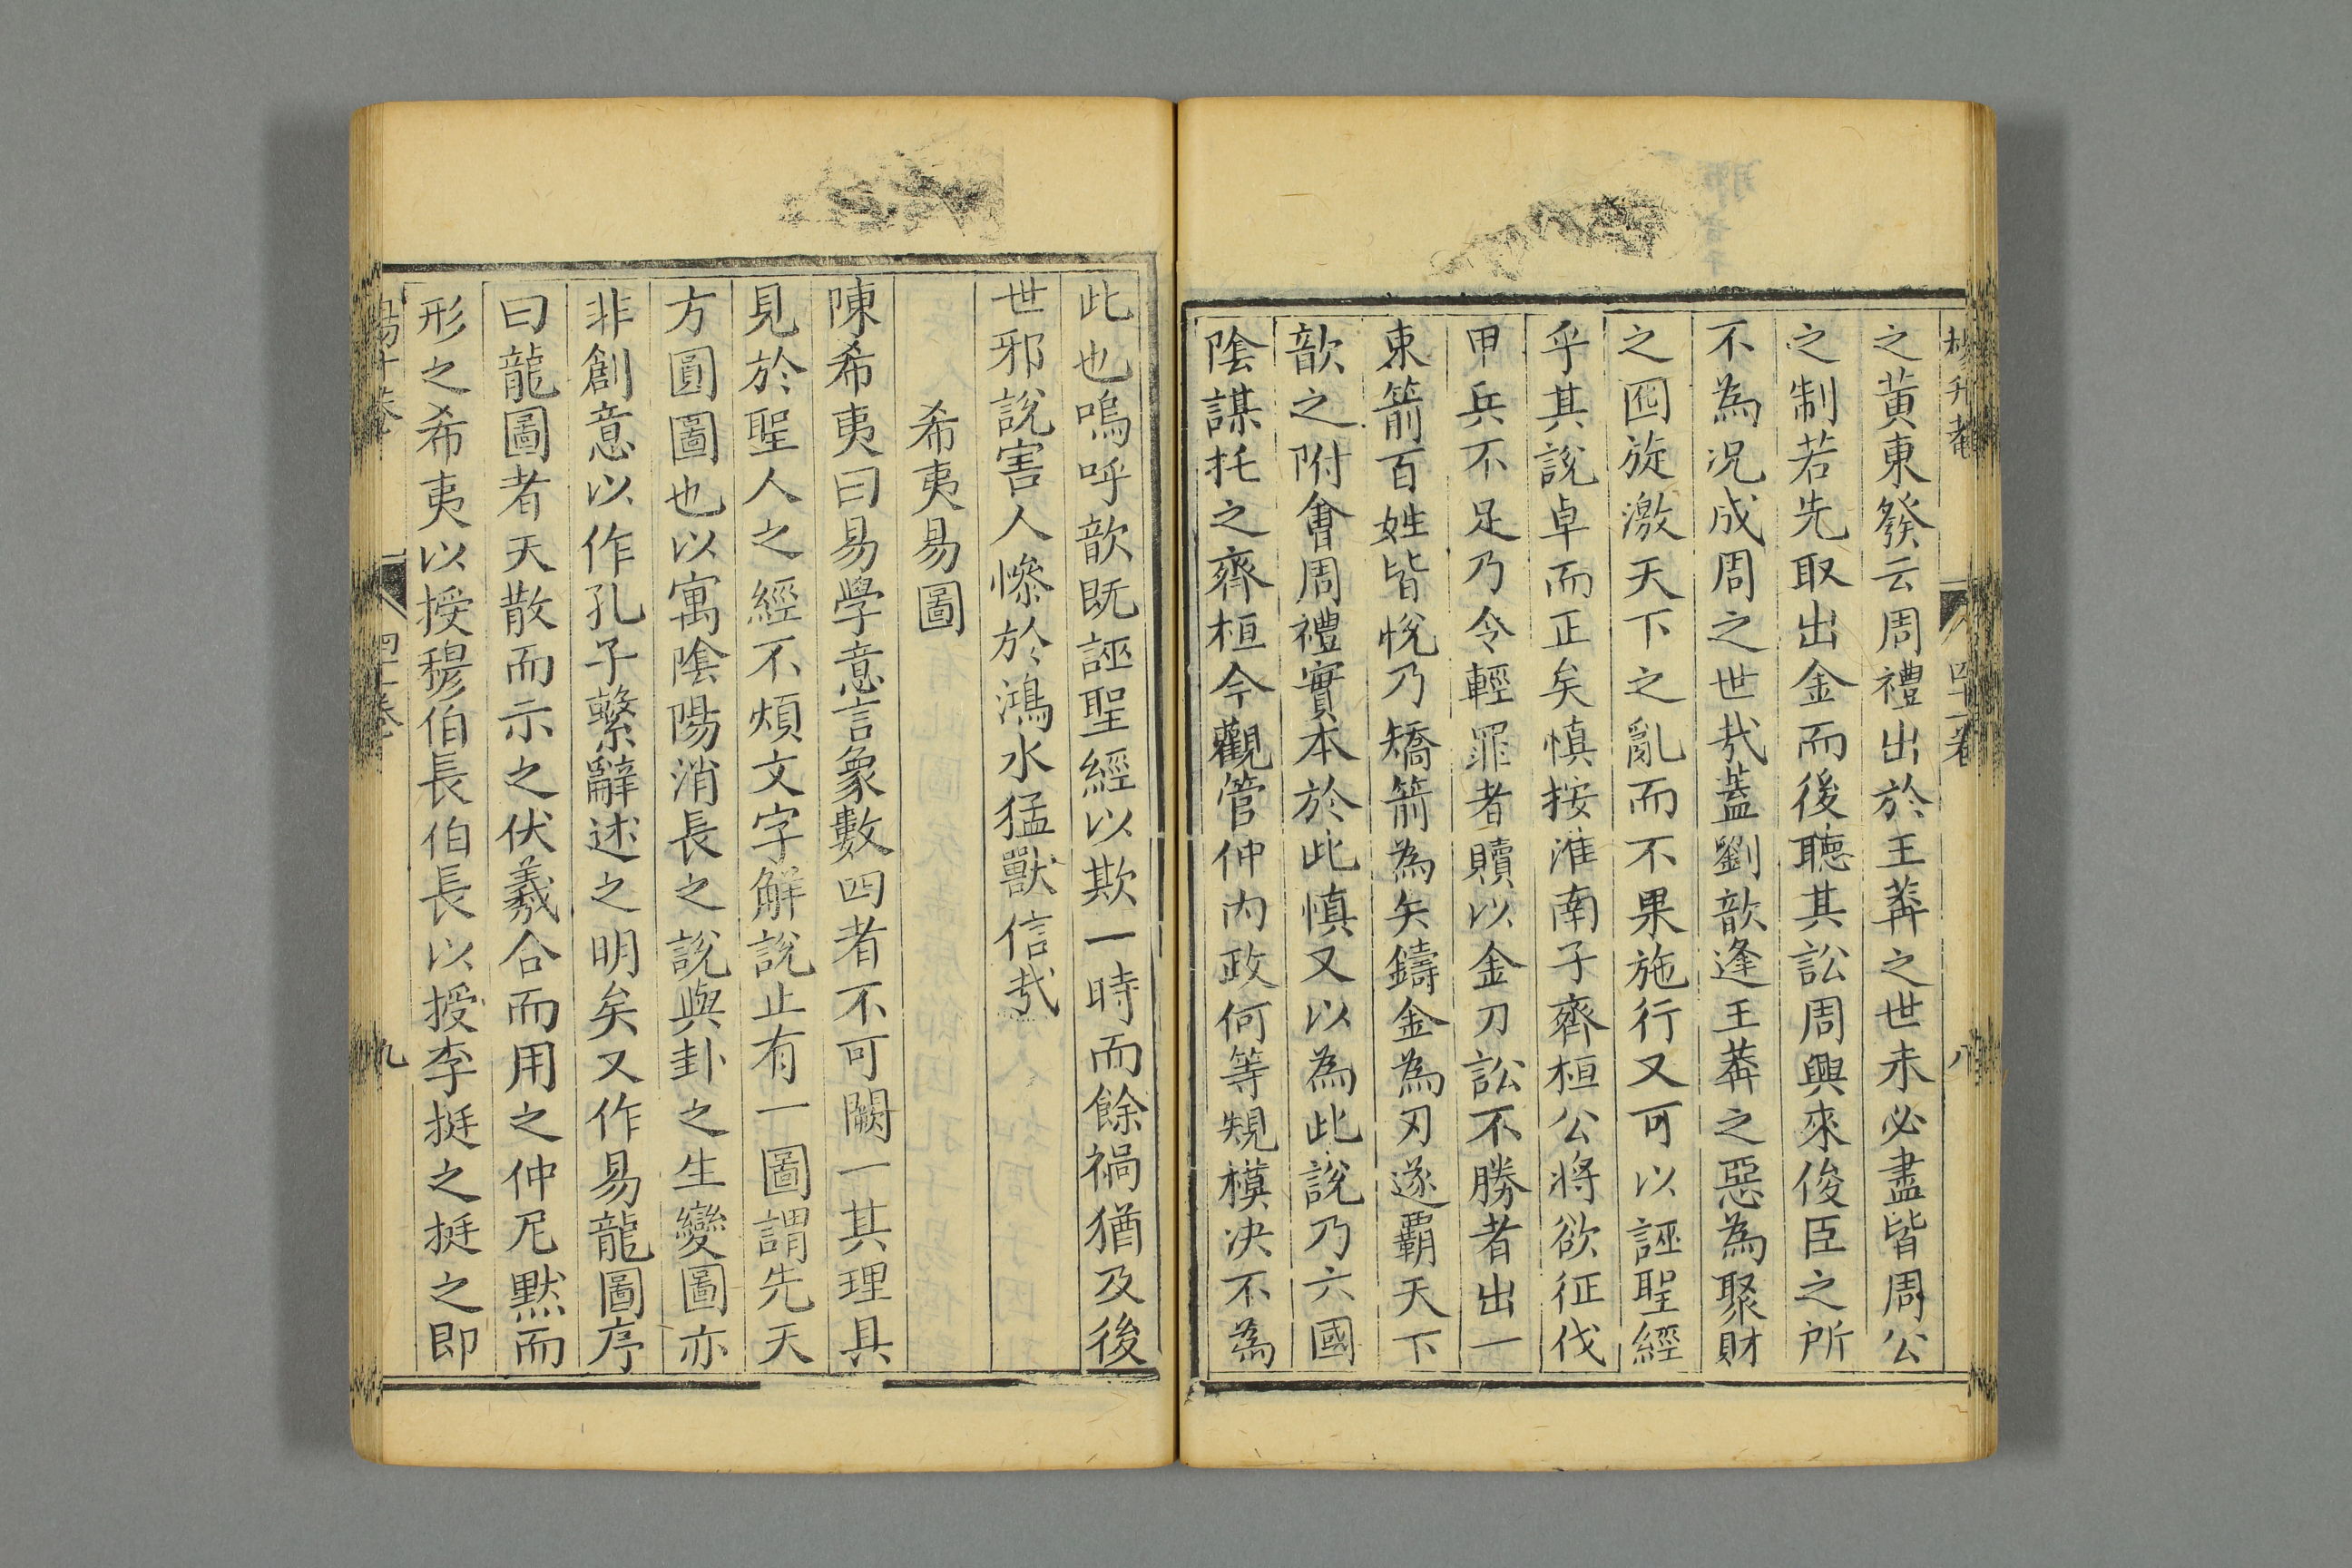 之黄東發云周禮出於王莽之世未必盡皆周公
之制若先取出金而後聽其訟周興來俊臣之所
不為况成周之世㢤蓋劉歆逢王莽之惡為聚財
之囮旋激天下之亂而不果施行又可以誣聖經
乎其說卓而正矣慎按淮南子齊桓公將欲征伐
甲兵不足乃令輕罪者贖以金刀訟不勝者出一
束箭百姓皆悅乃矯箭為矢鑄金為刃遂覇天下
歆之附會周禮實本於此慎又以為此說乃六國
隂謀托之齊桓今觀管仲内政何等規模决不為
此也嗚呼歆既誣聖經以欺一時而餘禍猶及後
世邪說害人慘於鴻水猛獸信㢤
希夷易圖
陳希夷曰易學意言象數四者不可闕一其理具
見於聖人之經不煩文字解說止有一圖謂先天
方圓圖也以寓隂陽消長之說與卦之生變圖亦
非創意以作孔子繫辭述之明矣又作易龍圖序
曰龍圖者天散而示之伏羲合而用之仲尼黙而
形之希夷以授穆伯長伯長以授李挺之挺之即
九